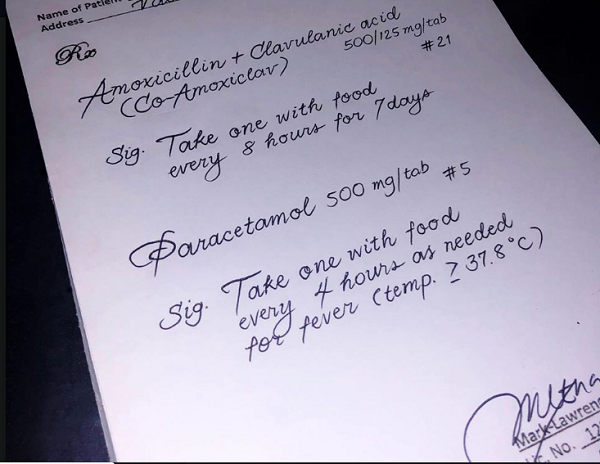 Name of Patient
Address
Rx
Amoxicillin + Clavulanic acid
500/125 mg/tab
(Co-Amoxiclav)
#21
Sig. Take one with food
every 8 hours for 7 days
Paracetamol 500 mg/tab #5
Sig. Take one with food
every 4 hours as needed
for fever (temp. ≥ 37.8°C)
Mark-Lawrenc
No. 12